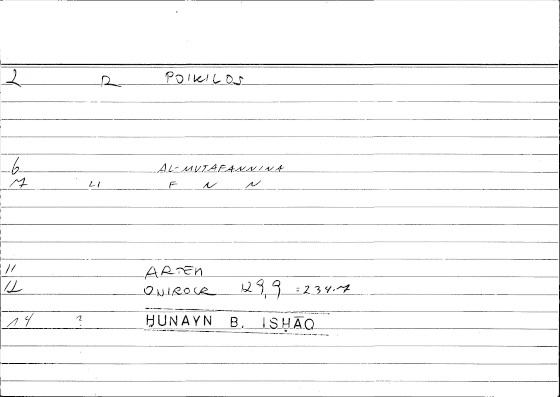 2 R POIKILOS
6 AL-MUTAFANNINA
7 LI F N N
11 ARTEN
12 ONIROCR 129,9 = 234.7
14 ? ḤUNAYN B. ISḤĀQ